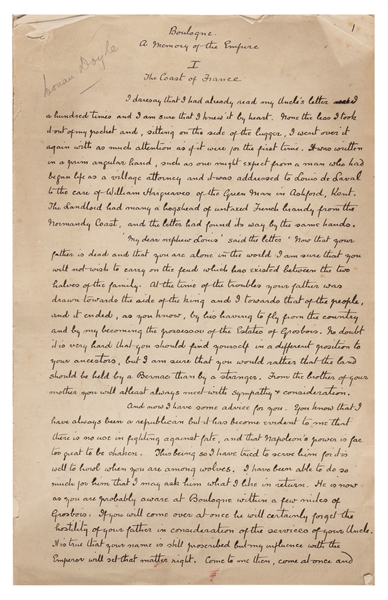 1
Boulogne.
A Memory of the Empire
Conan Doyle
I
The Coast of France
I daresay that I had already read my Uncle's letter
a hundred times and I am sure that I knew it by heart. None the less I took
it out of my pocket and, sitting on the side of the lugger, I went over it
again with as much attention as if it were for the first time. It was written
in a prim angular hand, such as one might expect from a man who had
began life as a village attorney and it was addressed to Louis de Laval
to the care of William Hargreaves of the Green Man in Ashford, Kent.
The Landlord had many a hogshead of untaxed French brandy from the
Normandy Coast, and the letter had found its way by the same hands.
'My dear nephew Louis' said the letter 'Now that your
father is dead and that you are alone in the world I am sure that you
will not wish to carry on the feud which has existed between the two
halves of the family. At the time of the troubles your father was
drawn towards the side of the king and I towards that of the people,
and it ended, as you know, by his having to fly from the country
and by my becoming the possessor of the Estates of Grosbois. No doubt
it is very hard that you should find yourself in a different position to
your ancestors, but I am sure that you would rather that the land
should be held by a Bernac than by a stranger. From the brother of your
mother you will at least always meet with sympathy & consideration.
And now I have some advice for you. You know that I
have always been a republican but it has become evident to me that
there is no use in fighting against fate, and that Napoleon's power is far
too great to be shaken. This being so I have tried to serve him for it is
well to howl when you are among wolves. I have been able to do so
much for him that I may ask him what I like in return. He is now
as you are probably aware at Boulogne within a few miles of
Grosbois. If you will come over at once he will certainly forget the
hostility of your father in consideration of the services of your Uncle.
It is true that your name is still proscribed but my influence with the
Emperor will set that matter right. Come to me then, come at once and